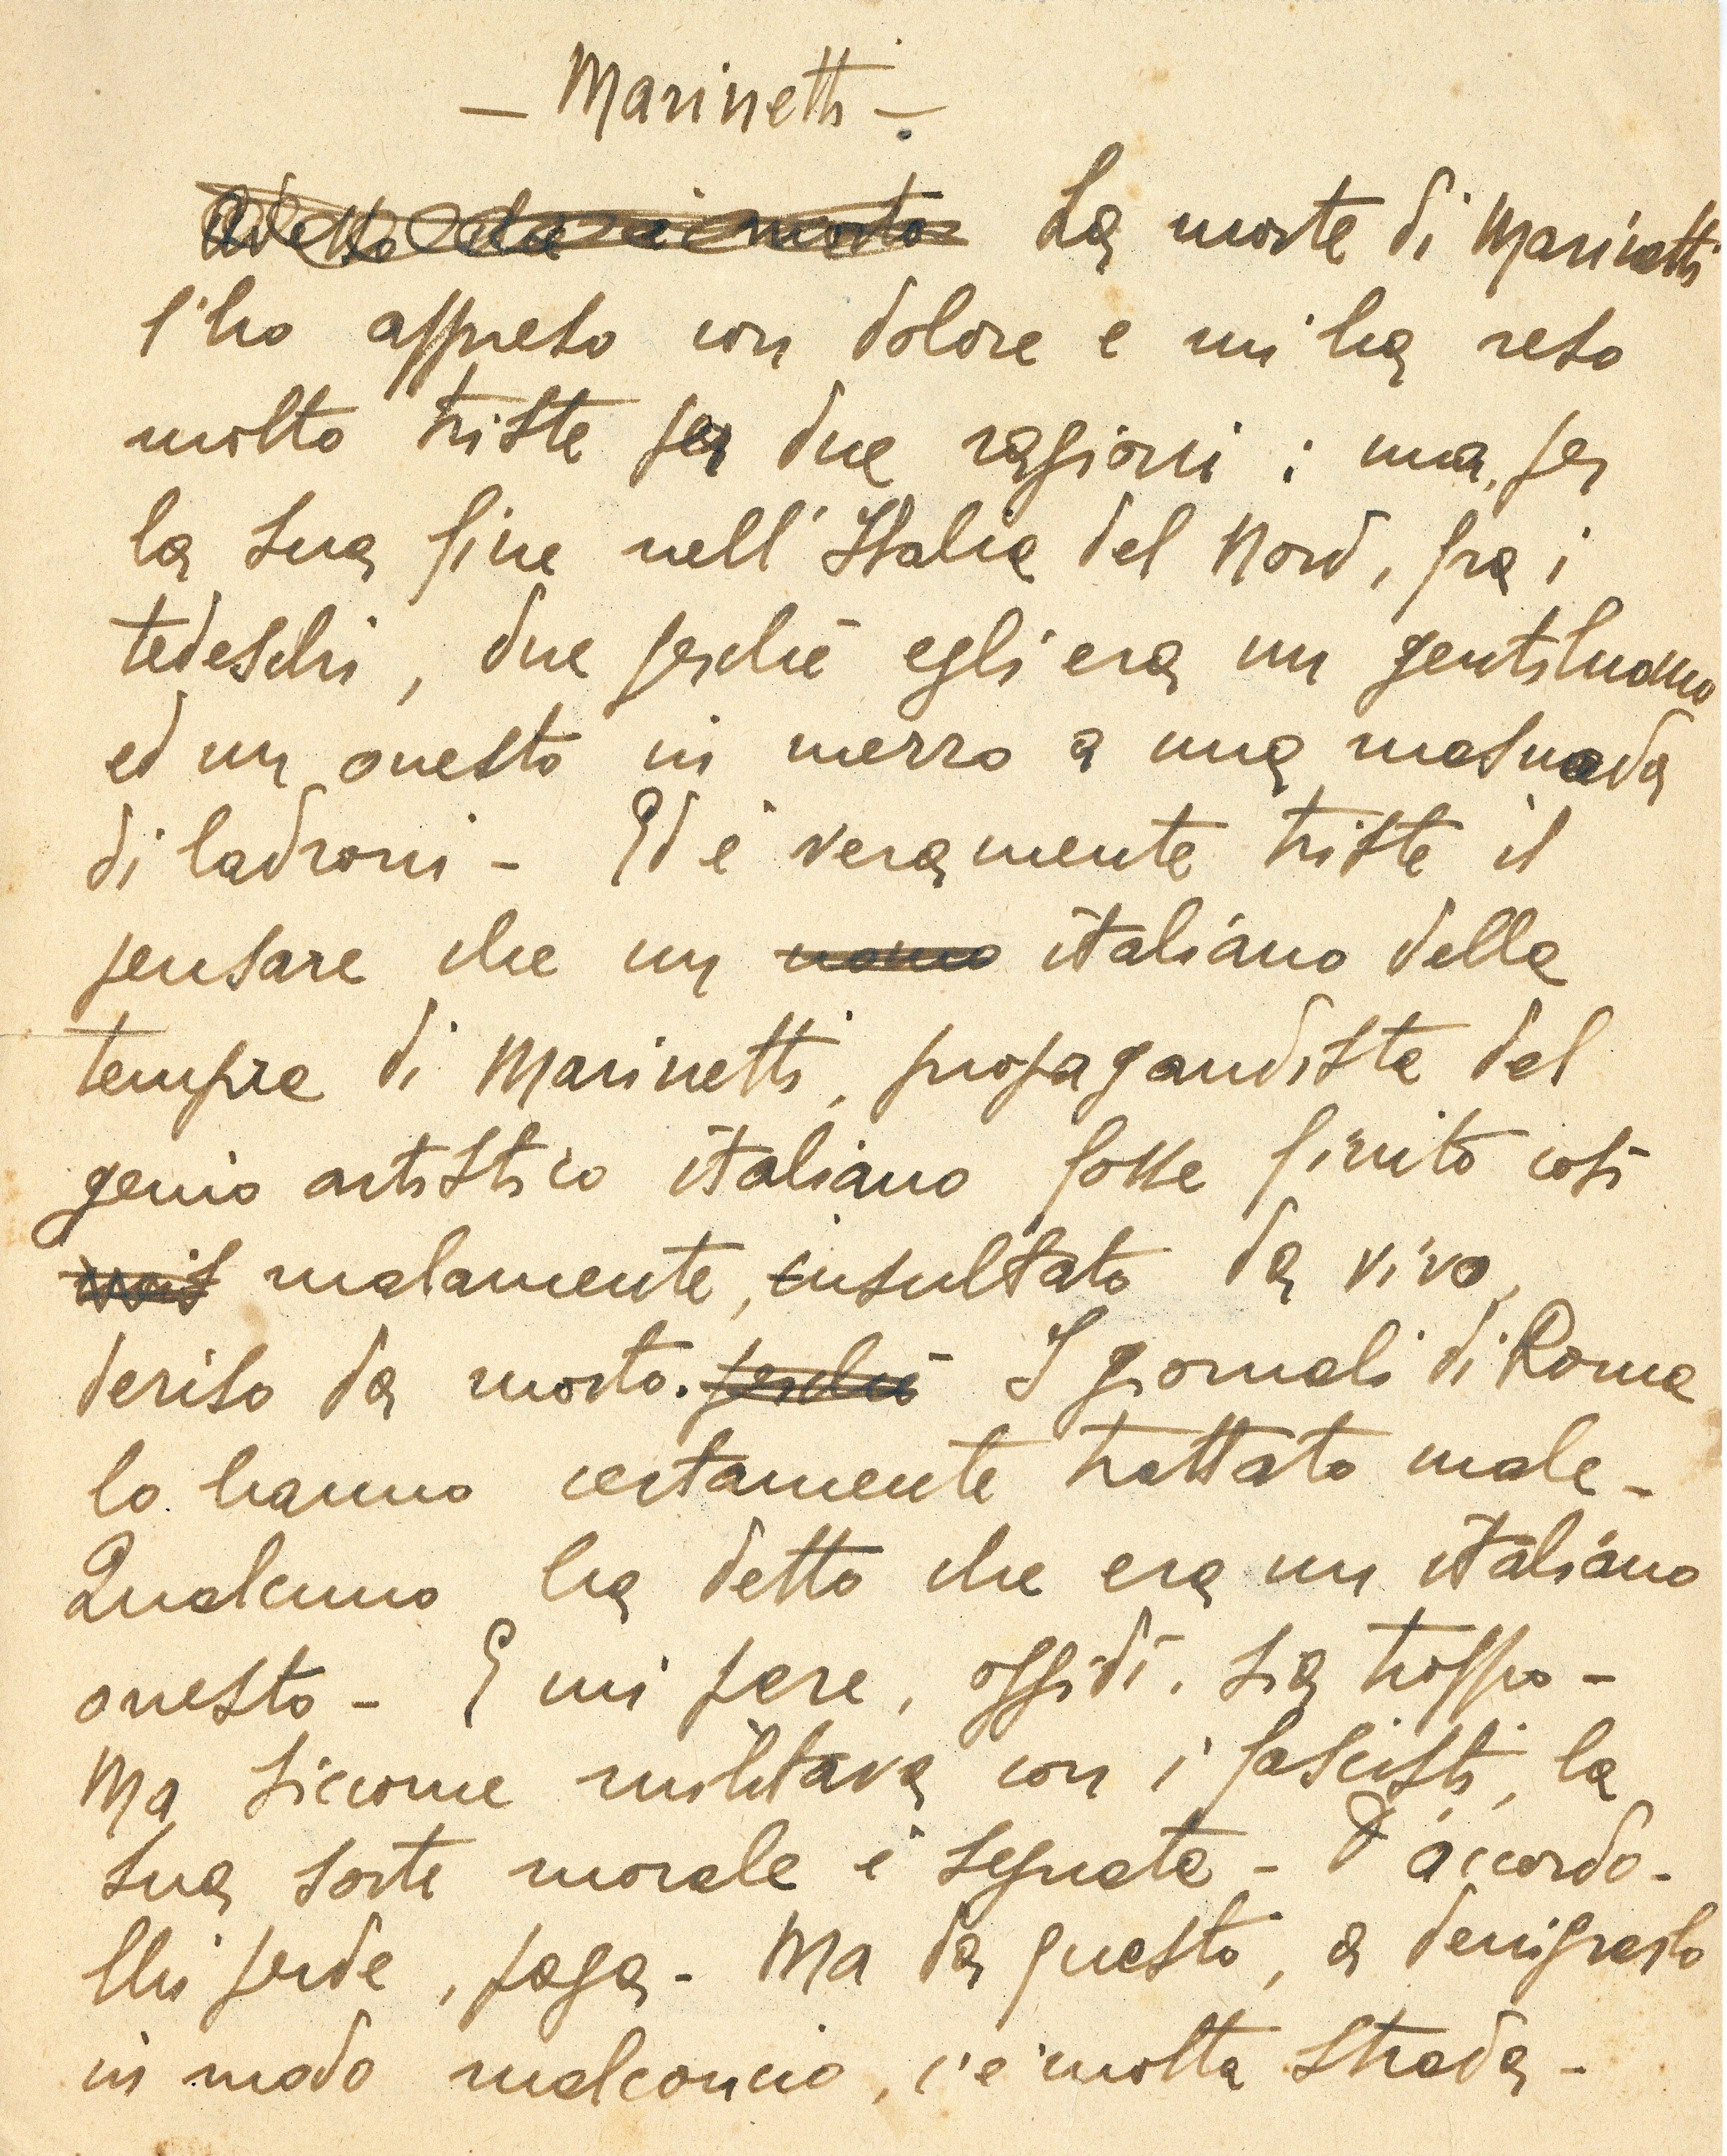 - Marinetti -.
Adesso che è morto La morte di Marinetti
l'ho appreso con dolore e mi ha reso
molto triste per due ragioni: una, per
la sua fine nell'Italia del Nord, fra i
tedeschi, due perchè egli era un gentiluomo
ed un onesto in mezzo a una masnada
di ladroni - Ed è veramente triste il
pensare che un uomo italiano della
tempra di Marinetti, propagandista del
genio artistico italiano fosse finito così
malamente, insultato da vivo,
deriso da morto. perchè I giornali di Roma
lo hanno certamente trattato male -
Qualcuno ha detto che era un italiano
onesto - E mi pare, oggidì, sia troppo -
Ma siccome militava con i fascisti, la
sua sorte morale è segnata - D'accordo -
Chi perde, paga - Ma da questo, a denigrarlo
in modo malconcio, c'è molta strada -